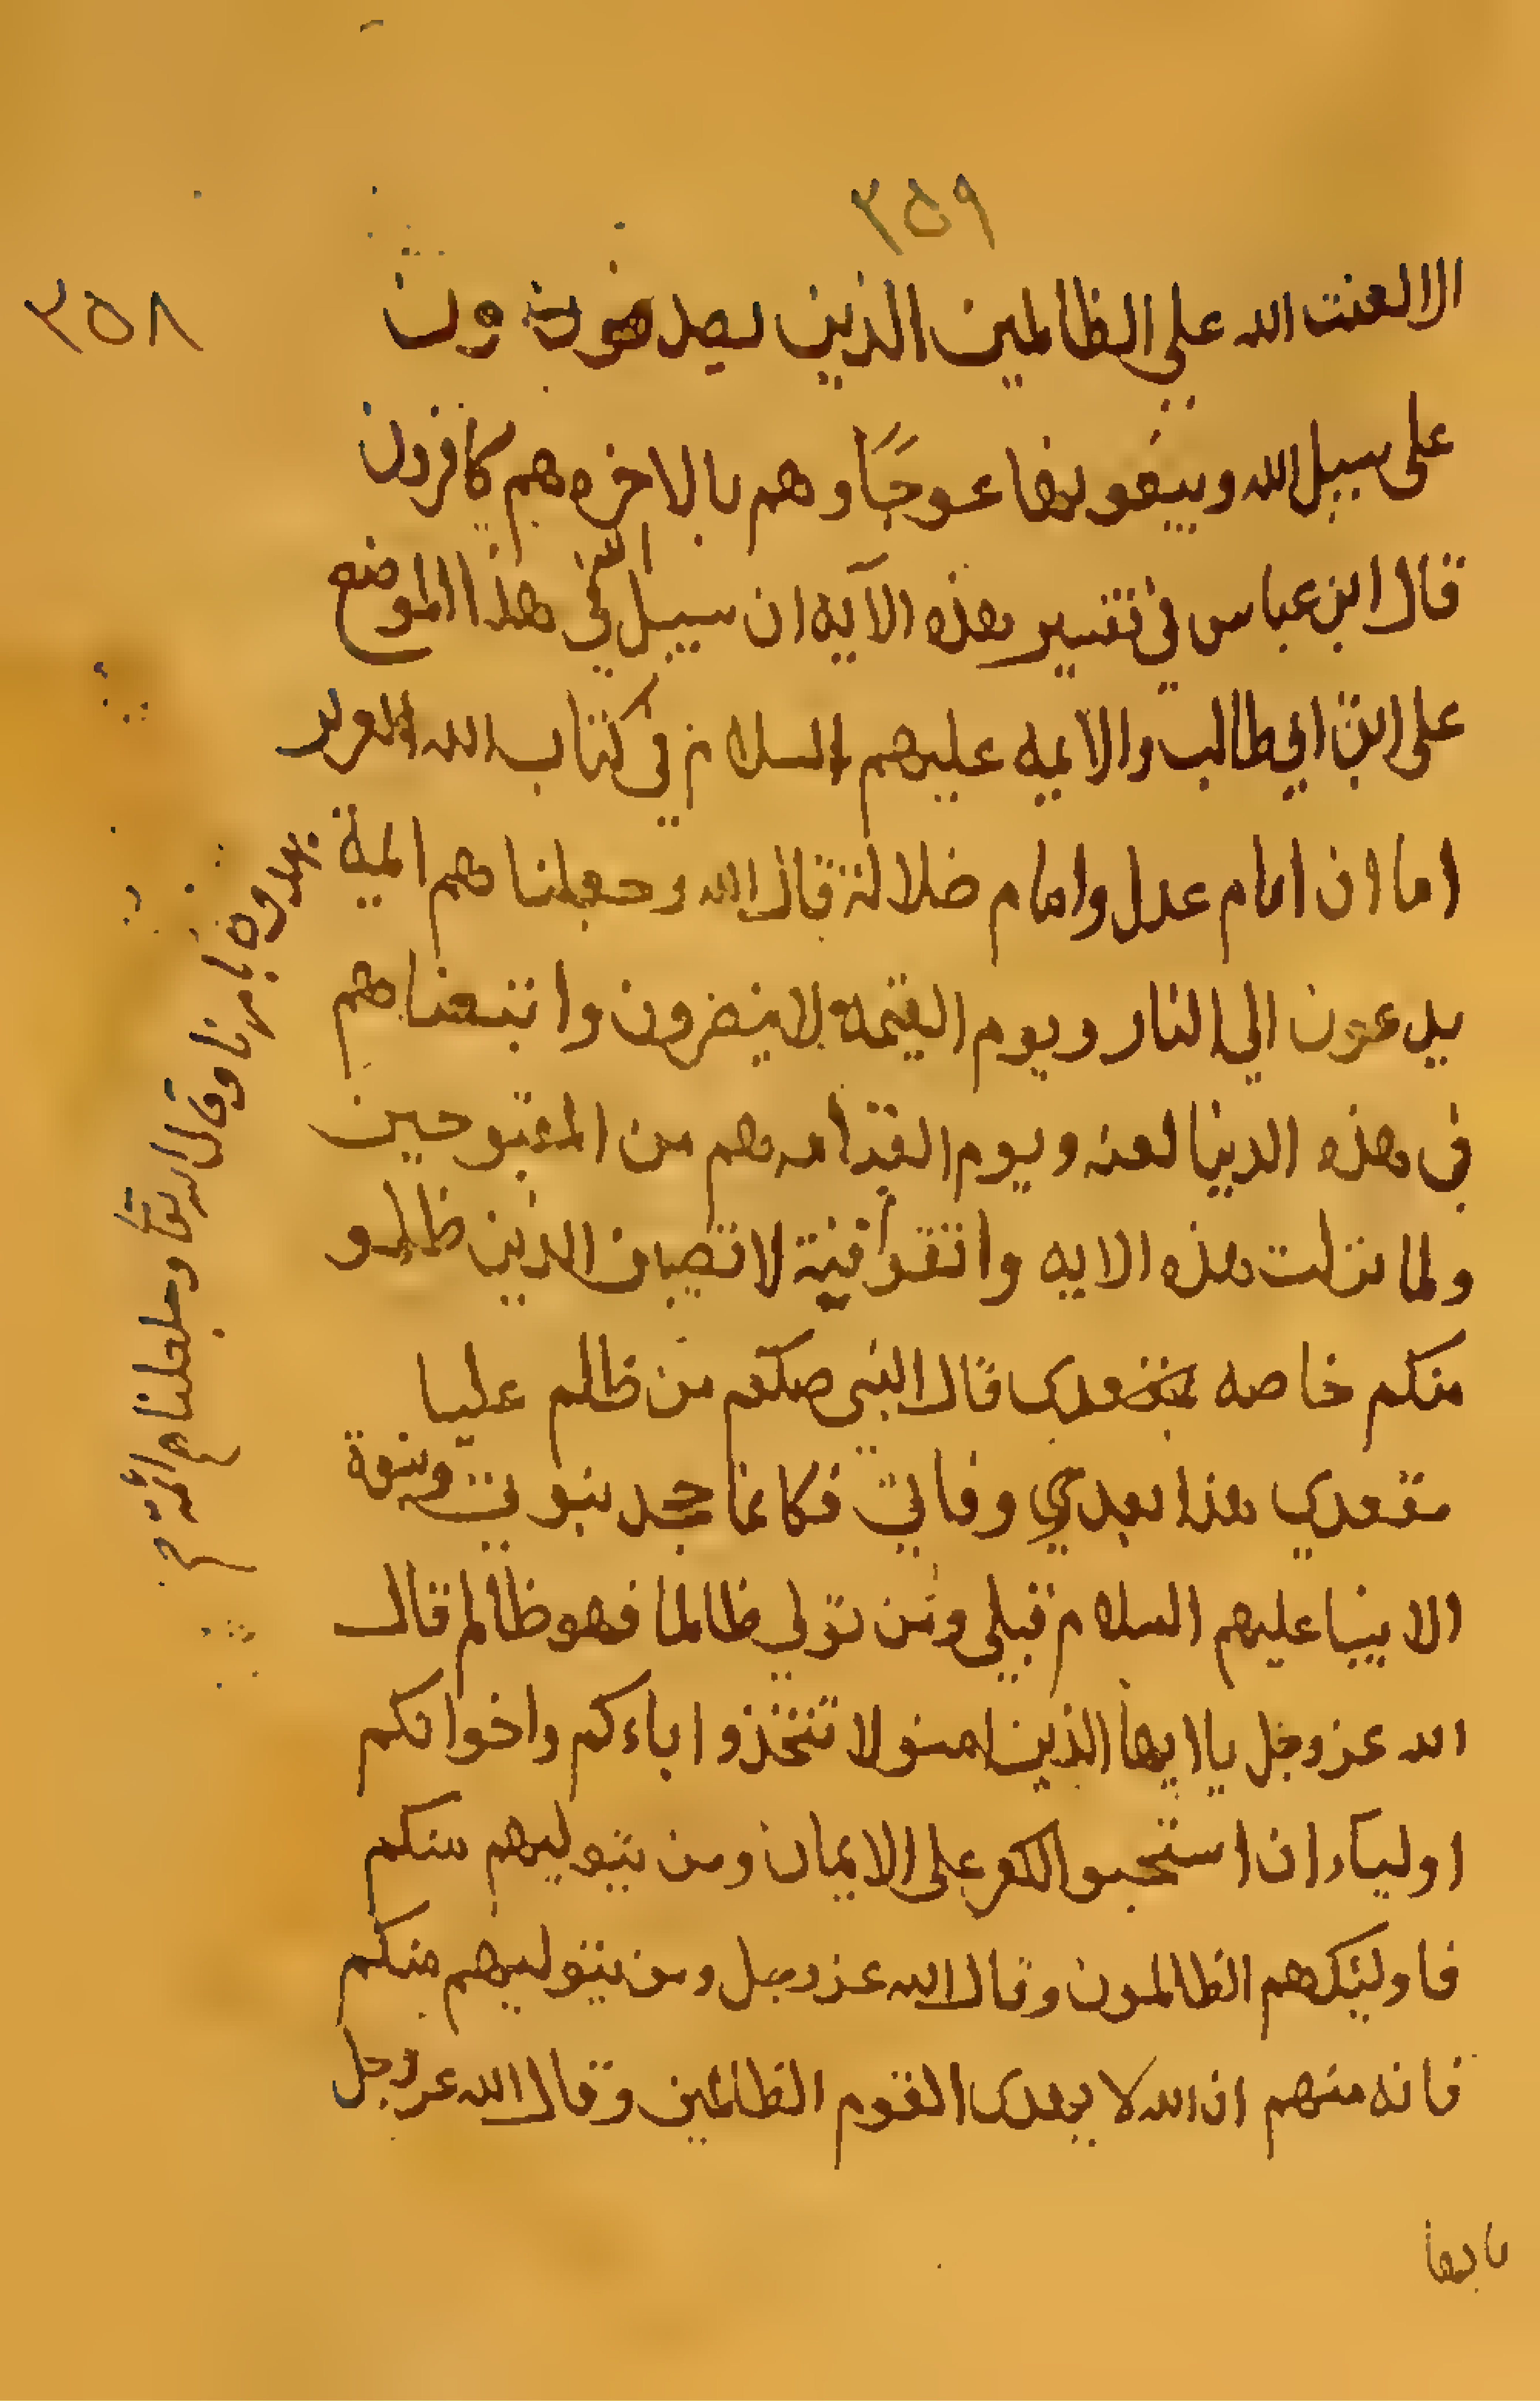 ٣٥٩
٣٥٨
الا لعنت الله على الظالمين الذين يصدون
على سبيل الله ويبغونها عوجًا وهم بالاخره هم كافرون
قال ابن عباس في تفسير هذه الآيه ان سبيل الله في هذا الموضع
على ابن ابي طالب والايمه عليهم السلام في كتاب الله العزيز
اما ان امام عدل وامام ضلالة قال الله وجعلناهم ايمة
يدعون الي النار ويوم القيمة لا ينصرون واتبعناهم
في هذه الدنيا لعنه ويوم القيامه هم من المقبوحين
ولما نزلت هذه الايه واتقوا فتنة لا تصيبن الذين ظلمو
منكم خاصه قال النبي صلعم من ظلم عليا
مقعدي هذا بعدي وفاتي فكانما جحد نبوتي ونبوة
الانبيا عليهم السلام قبلي ومن تولي ظالما فهو ظالم قال
الله عز وجل يا ايها الذين امنو لا تتخذو اباءكم واخوانكم
اولياء ان استحبو الكفر على الايمان ومن يتوليهم منكم
فاوليك هم الظالمون وقال الله عز وجل ومن يتوليهم منكم
فانه منهم ان الله لا يهدى القوم الظالمين وقال الله عز وجل
يا ايها
يهدون بامرنا وقال الله تعا وجعلناهم ائمة